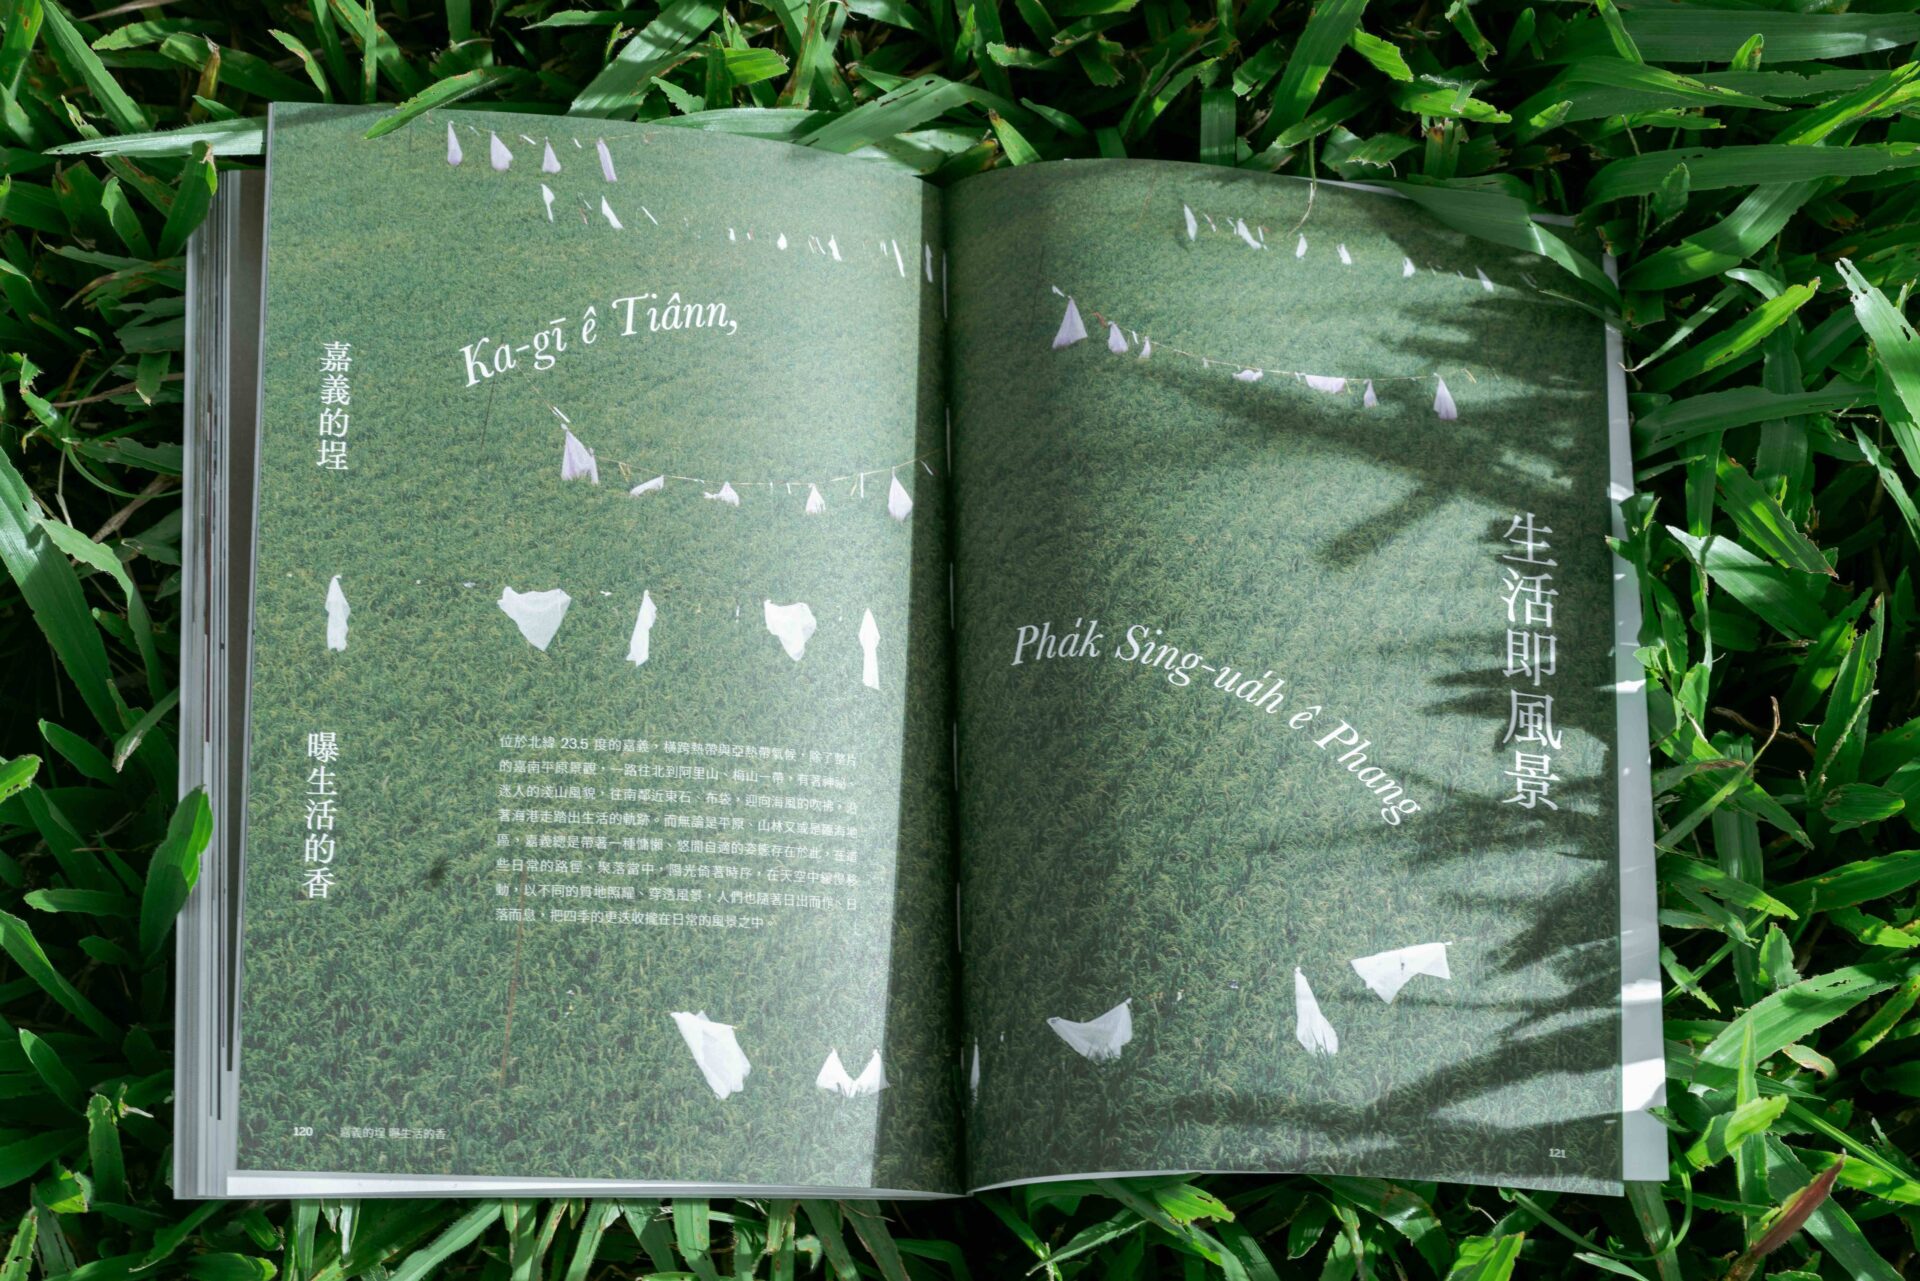 嘉義的埕
曝生活的香
Ka-gī ê Tiânn,
位於北緯 23.5 度的嘉義，橫跨熱帶與亞熱帶氣候，除了整片
的嘉南平原景觀，一路往北到阿里山、梅山一帶，有著神祕、
迷人的淺山風貌，往南鄰近東石、布袋，迎向海風的吹拂，沿
著海港走踏出生活的軌跡。而無論是平原、山林又或是臨海地
區，嘉義總是帶著一種慵懶、悠閒自適的姿態存在於此，在這
些日常的路徑、聚落當中，陽光倚著時序，在天空中緩慢移
動，以不同的質地照耀、穿透風景，人們也隨著日出而作、日
落而息，把四季的更迭收攏在日常的風景之中。
120 嘉義的埕 曝生活的香
生活即風景
Pha̍k Sing-ua̍h ê Phang
121